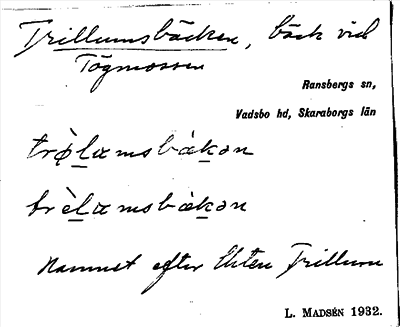 Trillumsbäcken, bäck vid
Tögmossen
Ransbergs sn,
Vadsbo hd, Skaraborgs län
trø̀lamsbàkən
trèlamsbàkən
Namnet efter Ekten Trillum
L. MADSÉN 1932.